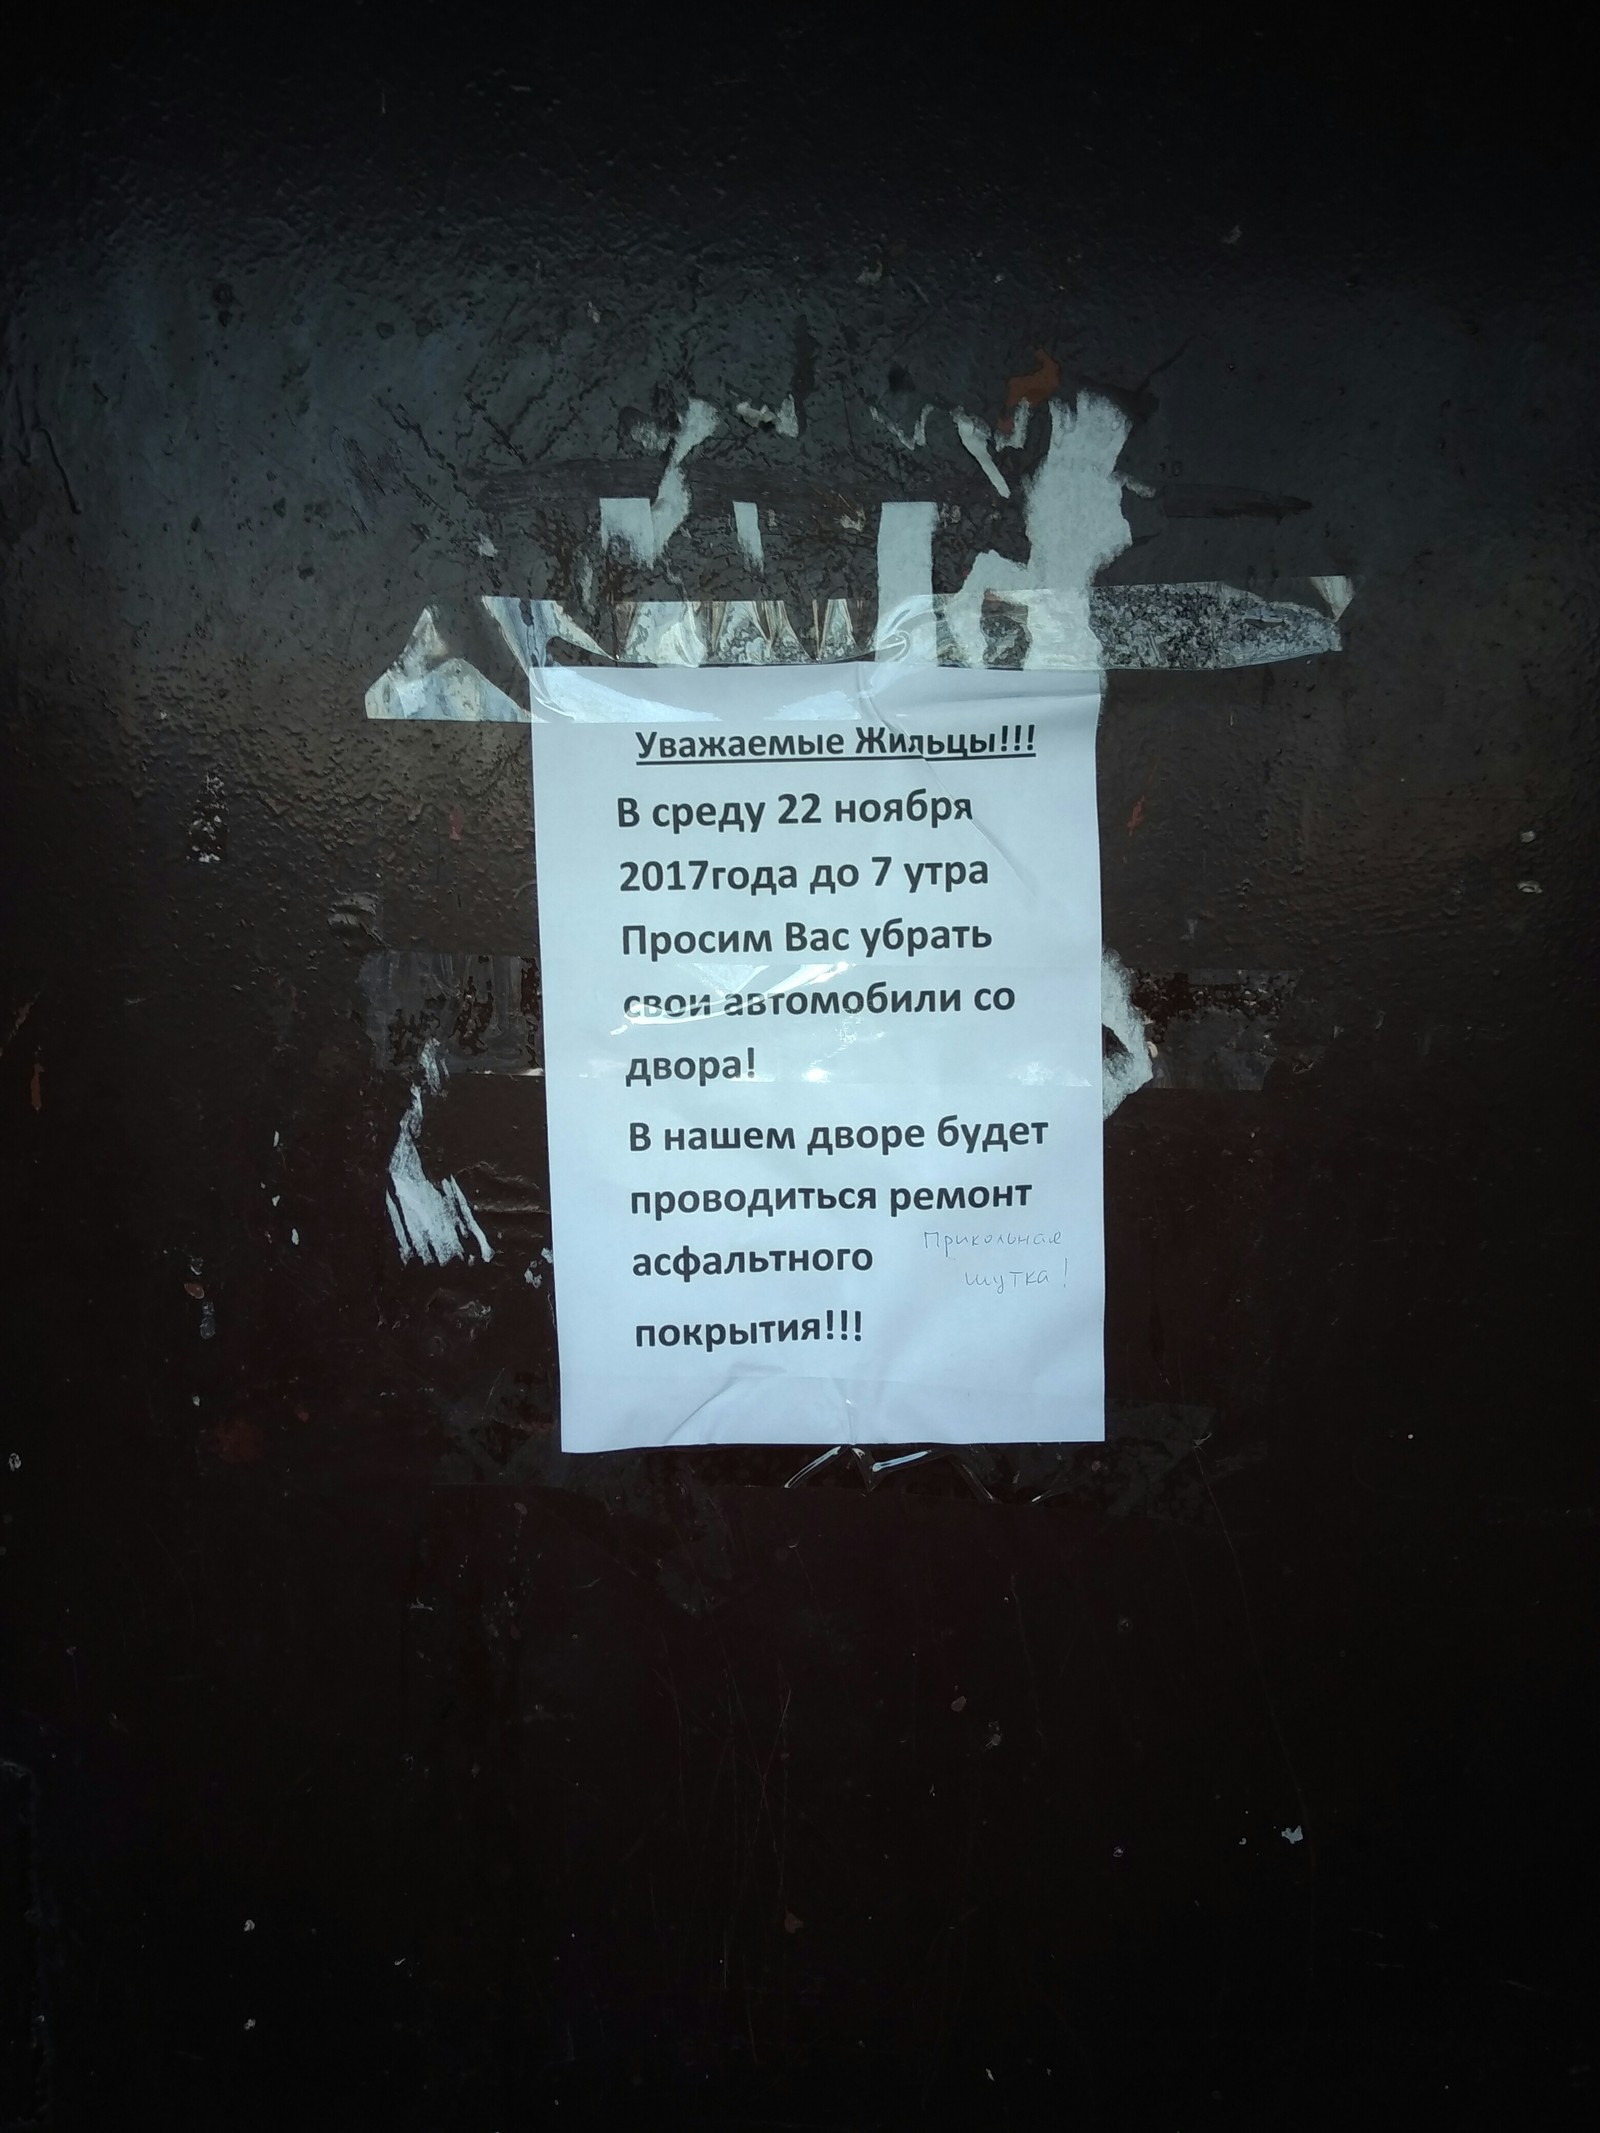 Уважаемые Жильцы!!!
В среду 22 ноября
2017года до 7 утра
Просим Вас убрать
свои автомобили со
двора!
В нашем дворе будет
проводиться ремонт
асфальтного
покрытия!!!
Прикольная
шутка!